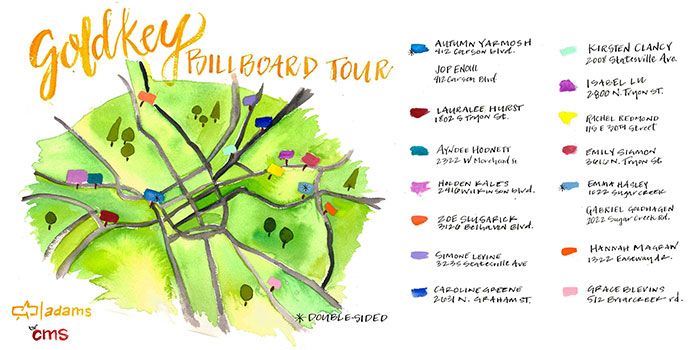 Goldkey
BILLBOARD TOUR
AUTUMN YARMOSH
412 Carson Blvd.
JOP ENOUL
412 Carson Blvd
LAURALEE HURST
1802 S Tryon St.
AYNDEE HODNETT
2322 W Morehead St
HOLDEN KALES
2416 WILKINSON BLVD.
ZOE SLUSARICK
3126 BELHAVEN BLVD.
SIMONE LEVINE
3235 Statesville Ave
CAROLINE GREENE
2031 N. GRAHAM ST.
KIRSTEN CLANCY
2008 Statesville Ave
ISABEL LU
2800 N. Tryon ST.
RACHEL REDMOND
115 E 30TH Street
EMILY SIGMON
3616 N. Tryon St
EMMA HASLEY
1022 Sugar creek
GABRIEL GOLDHAGEN
2022 Sugar Creek Rd.
HANNAH MAGRAN
1322 Eastway dr.
GRACE BLEVINS
512 Briarcreek rd.
*DOUBLE-SIDED
adams
for
CMS